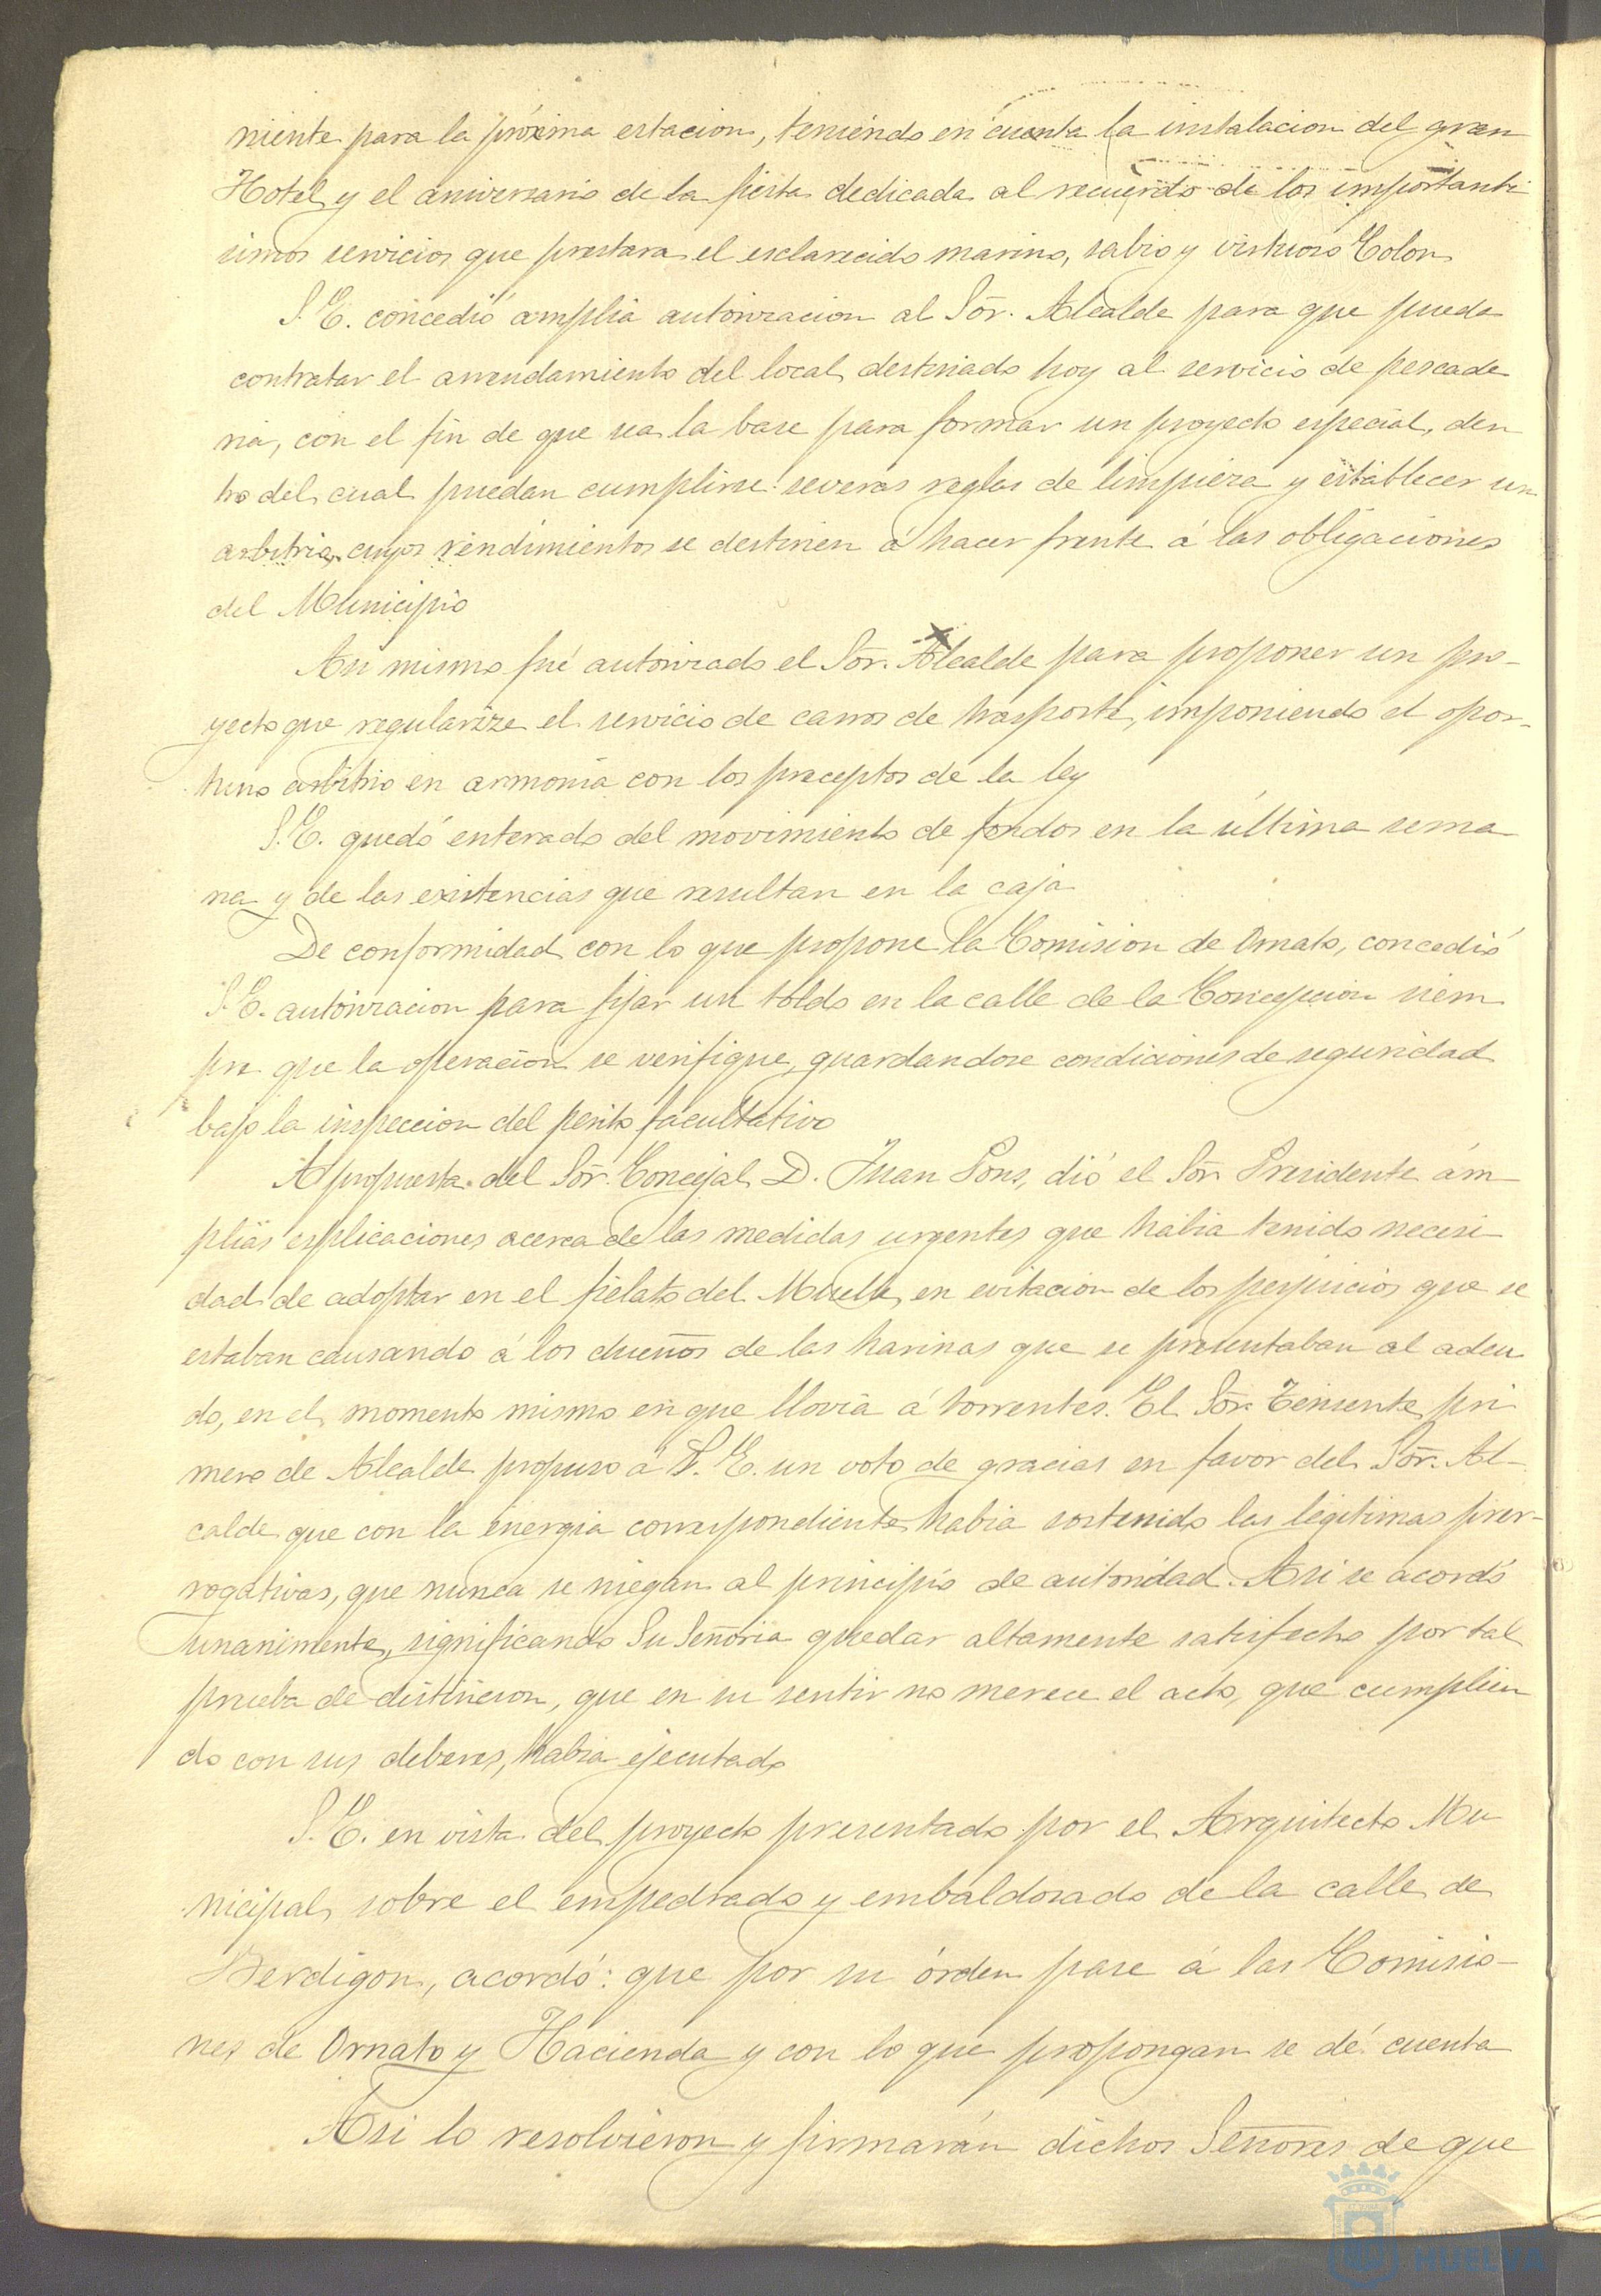 niente para la próxima estacion, teniendo en cuenta la instalacion del gran
Hotel y el aniversario de la fiesta dedicada al recuerdo de los importanti
simos servicios que prestara el esclarecido marino, sabio y virtuoso Colon
S. E. concedió amplia autorizacion al Sõr. Alcalde para que pueda
contratar el arrendamiento del local destinado hoy al servicio de pescade
ria, con el fin de que sea la base para formar un proyecto especial, den
tro del cual puedan cumplirse severas reglas de limpieza y establecer un
arbitrio cuyos rendimientos se destinen á hacer frente á las obligaciones
del Municipio
Asi mismo fué autorizado el Sõr. Alcalde para proponer un pro-
yecto que regularize el servicio de carros de trasporte, imponiendo el opor-
tuno arbitrio en armonia con los preceptos de la ley
S. E. quedó enterado del movimiento de fondos en la última sema
na y de las existencias que resultan en la caja
De conformidad con lo que propone la Comision de Ornato, concedió
S. E. autorizacion para fijar un toldo en la calle de la Concepcion siem
pre que la operacion se verifique, guardandose condiciones de seguridad
bajo la inspeccion del perito facultativo
A propuesta del Sõr. Concejal D. Juan Pons, dió el Sõr Presidente ám
plias esplicaciones acerca de las medidas urgentes que habia tenido necesi
dad de adoptar en el fielato del Muelle, en evitacion de los perjuicios que se
estaban causando á los dueños de las harinas que se presentaban al adeu
do, en el momento mismo en que llovia á torrentes. El Sõr. Teniente pri
mero de Alcalde propuso á S. E. un voto de gracias en favor del Sõr. Al-
calde que con la energia correspondiente habia sostenido las legitimas prer-
rogativas, que nunca se niegan al principio de autoridad. Asi se acordó
unanimente, significando Su Señoria quedar altamente satisfecho por tal
prueba de distincion, que en su sentir no merece el acto, que cumplien
do con sus deberes, habia ejecutado
S. E. en vista del proyecto presentado por el Arquitecto Mu
nicipal sobre el empedrado y embaldosado de la calle de
Berdigon, acordó: que por su órden pase á las Comisio-
nes de Ornato y Hacienda y con lo que propongan se dé cuenta
Asi lo resolvieron y firmarán dichos Señores de que
HUELVA